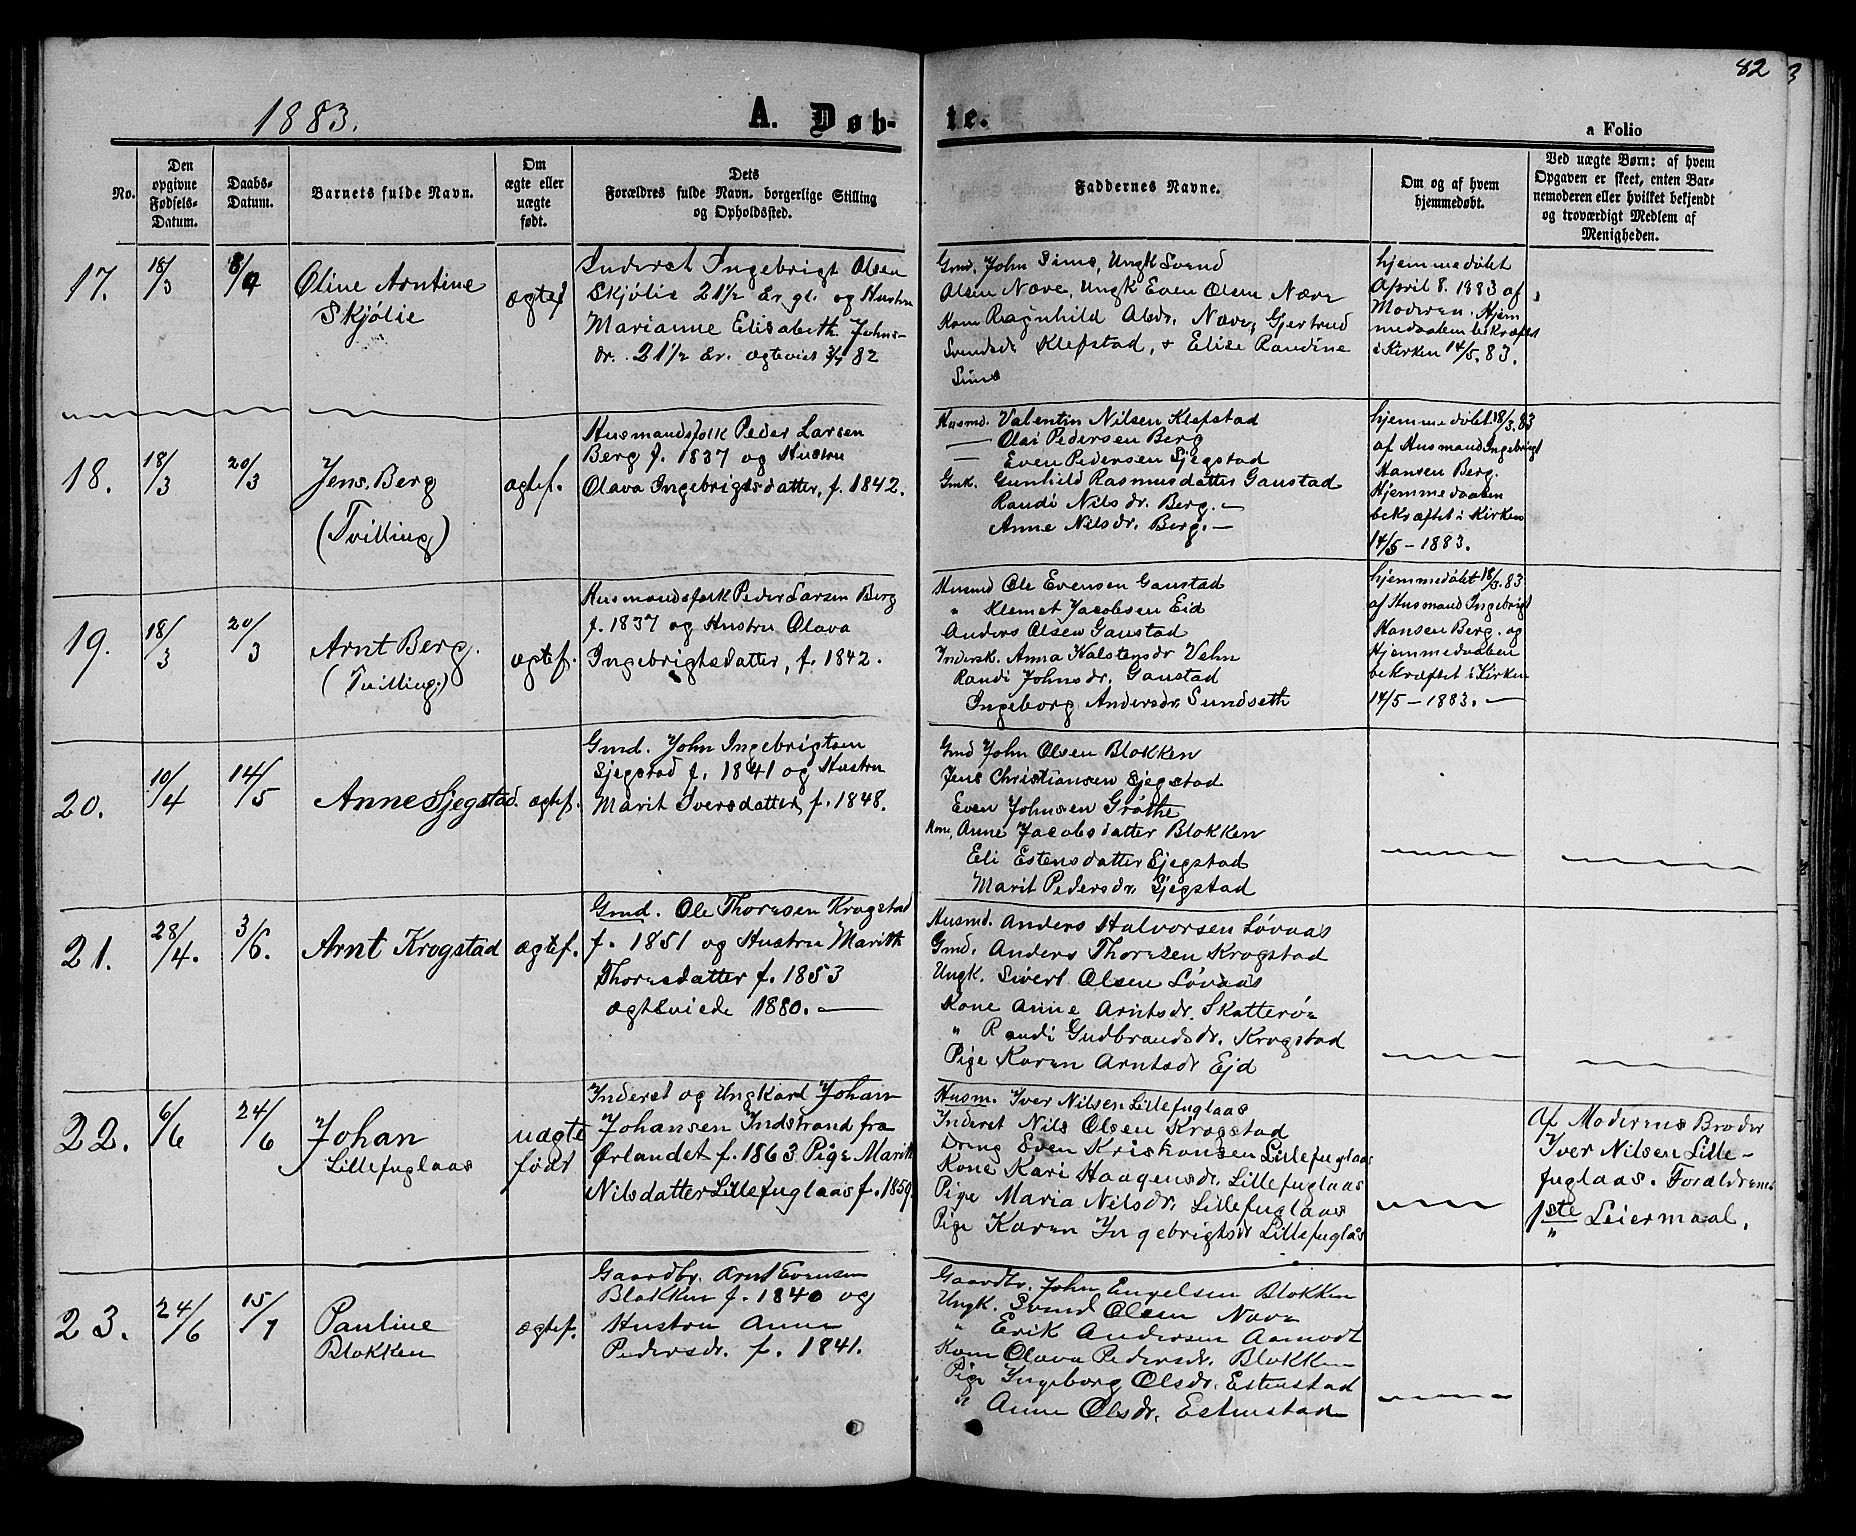 82
3
1883.
A. Døb-
te.
a Folio
No.
Den
opgivne
Fødsels-
Datum.
Daabs-
Datum.
Barnets fulde Navn.
Om
ægte eller
uægte
født.
Dets
Forældres fulde Navn, borgerlige Stilling
og Opholdssted.
Faddernes Navne.
Om og af hvem
hjemmedøbt.
Ved uægte Børn: af hvem
Opgaven er skeet, enten Bar-
nemoderen eller hvilket bekjendt
og troværdigt Medlem af
Menigheden.
17.
18/3
8/4
Oline Arntine
Skjølie
ægtef
Inderst Ingebrigt Olsen
Skjølie 21 1/2 Er. gl. og Hustru
Marianne Elisabeth Johns-
dr. 21 1/2 Er. ægteviet 82
Gmd. John Sims, Ungk Svend
Olsen Næve, Ungk Even Olsen Næve
Kone Ragnhild Olsdr. Næve, Gjertrud
Svendsdr. Klefstad, & Elise Randine
Sims
hjemmedøbt
April 8. 1883 af
Moderen. Hjem
medaaben bekræftet
i Kirken 14/5. 83.
18.
18/3
20/3
Jens Berg
(Tvilling)
ægtef.
Husmandsfolk Peder Larsen
Berg f. 1837 og Hustru
Olava Ingebrigtsdatter, f. 1842.
Husmd. Valentin Nilsen Klefstad
— Olai Pedersen Berg
— Even Pedersen Sjegstad
Gmk. Gunhild Rasmusdatter Gaustad
Randi Nilsdr. Berg. —
Anne Nilsdr. Berg. —
hjemmedøbt 18/3. 83
af Husmand Ingebrigt
Hansen Berg.
Hjemmedaaben
bekræftet i Kirken
14/5 – 1883.
19.
18/3
20/3
Arnt Berg.
(Tvilling.)
ægtef.
Husmandsfolk Peder Larsen Berg
f. 1837 og Hustru Olava
Ingebrigtsdatter, f. 1842.
Husmd Ole Evensen Gaustad
" Klemet Jacobsen Eid
Anders Olsen Gaustad
Indersk. Anna Kalstensdr Vehn
Randi Johnsdr. Gaustad
Ingeborg Andersdr Sundseth
hjemmedøbt 18/3. 83
af Husmand Ingebrigt
Hansen Berg. og
Hjemmedaaben
bekræftet i Kirken
14/5 – 1883. —
20.
10/4
14/5
Anne Sjegstad.
ægtef.
Gmd. John Ingebrigtsen
Sjegstad f. 1841 og Hustru
Marit Iversdatter, f. 1848.
Gmd John Olsen Blokken
Jens Christiansen Sjegstad
Even Johnsen Grøthe
Kone, Anne Jacobsdatter Blokken
Eli Estensdatter Sjegstad
Marit Pedersdr. Sjegstad
21.
28/4.
3/6.
Arnt Krogstad
ægtef.
Gmd. Ole Thoresen Krogstad
f. 1851 og Hustru Marith
Thoresdatter f. 1853
ægteviede 1880. —
Husmd. Anders Halvorsen Løvaas
Gmd. Anders Thoresen Krogstad
Ungk. Sivert Olsen Løvaas
Kone Anne Arntsdr. Skatterøe
" Randi Gudbrandsdr. Krogstad
Pige Karen Arntsdr Ejd
22.
6/6
24/6
Johan
Lillefuglaas
uægte
født
Inderst og Ungkarl Johan
Johansen Indstrand fra
Ørlandet f. 1863 Pige Marith
Nilsdatter Lillefuglaas f. 1859.
Husm. Iver Nilsen Lillefuglaas
Inderst Nils Olsen Krogstad
Dreng Even Kristiansen Lillefuglaas
Kone Kari Haagensdr. Lillefuglaas
Pige Maria Nilsdr. Lillefuglaas
Pige Karen Ingebrigtsdr Lillefuglås
Af Moderens Broder
Iver Nilsen Lille-
fuglaas. Forældrenes
1ste Leiermaal.
23.
24/6
15/7
Pauline
Blokken
ægtef.
Gaardbr. Arnt Evensen
Blokken f. 1840 og
Hustru Anne
Pedersdr. f. 1841.
Gaardbr. John Engelsen Blokken
Ungk. Svend Olsen Næve
" Erik Andersen Aamodt
Kone Olava Pedersdr. Blokken
Pige Ingeborg Olsdr. Estenstad
" Anne Olsdr. Estenstad